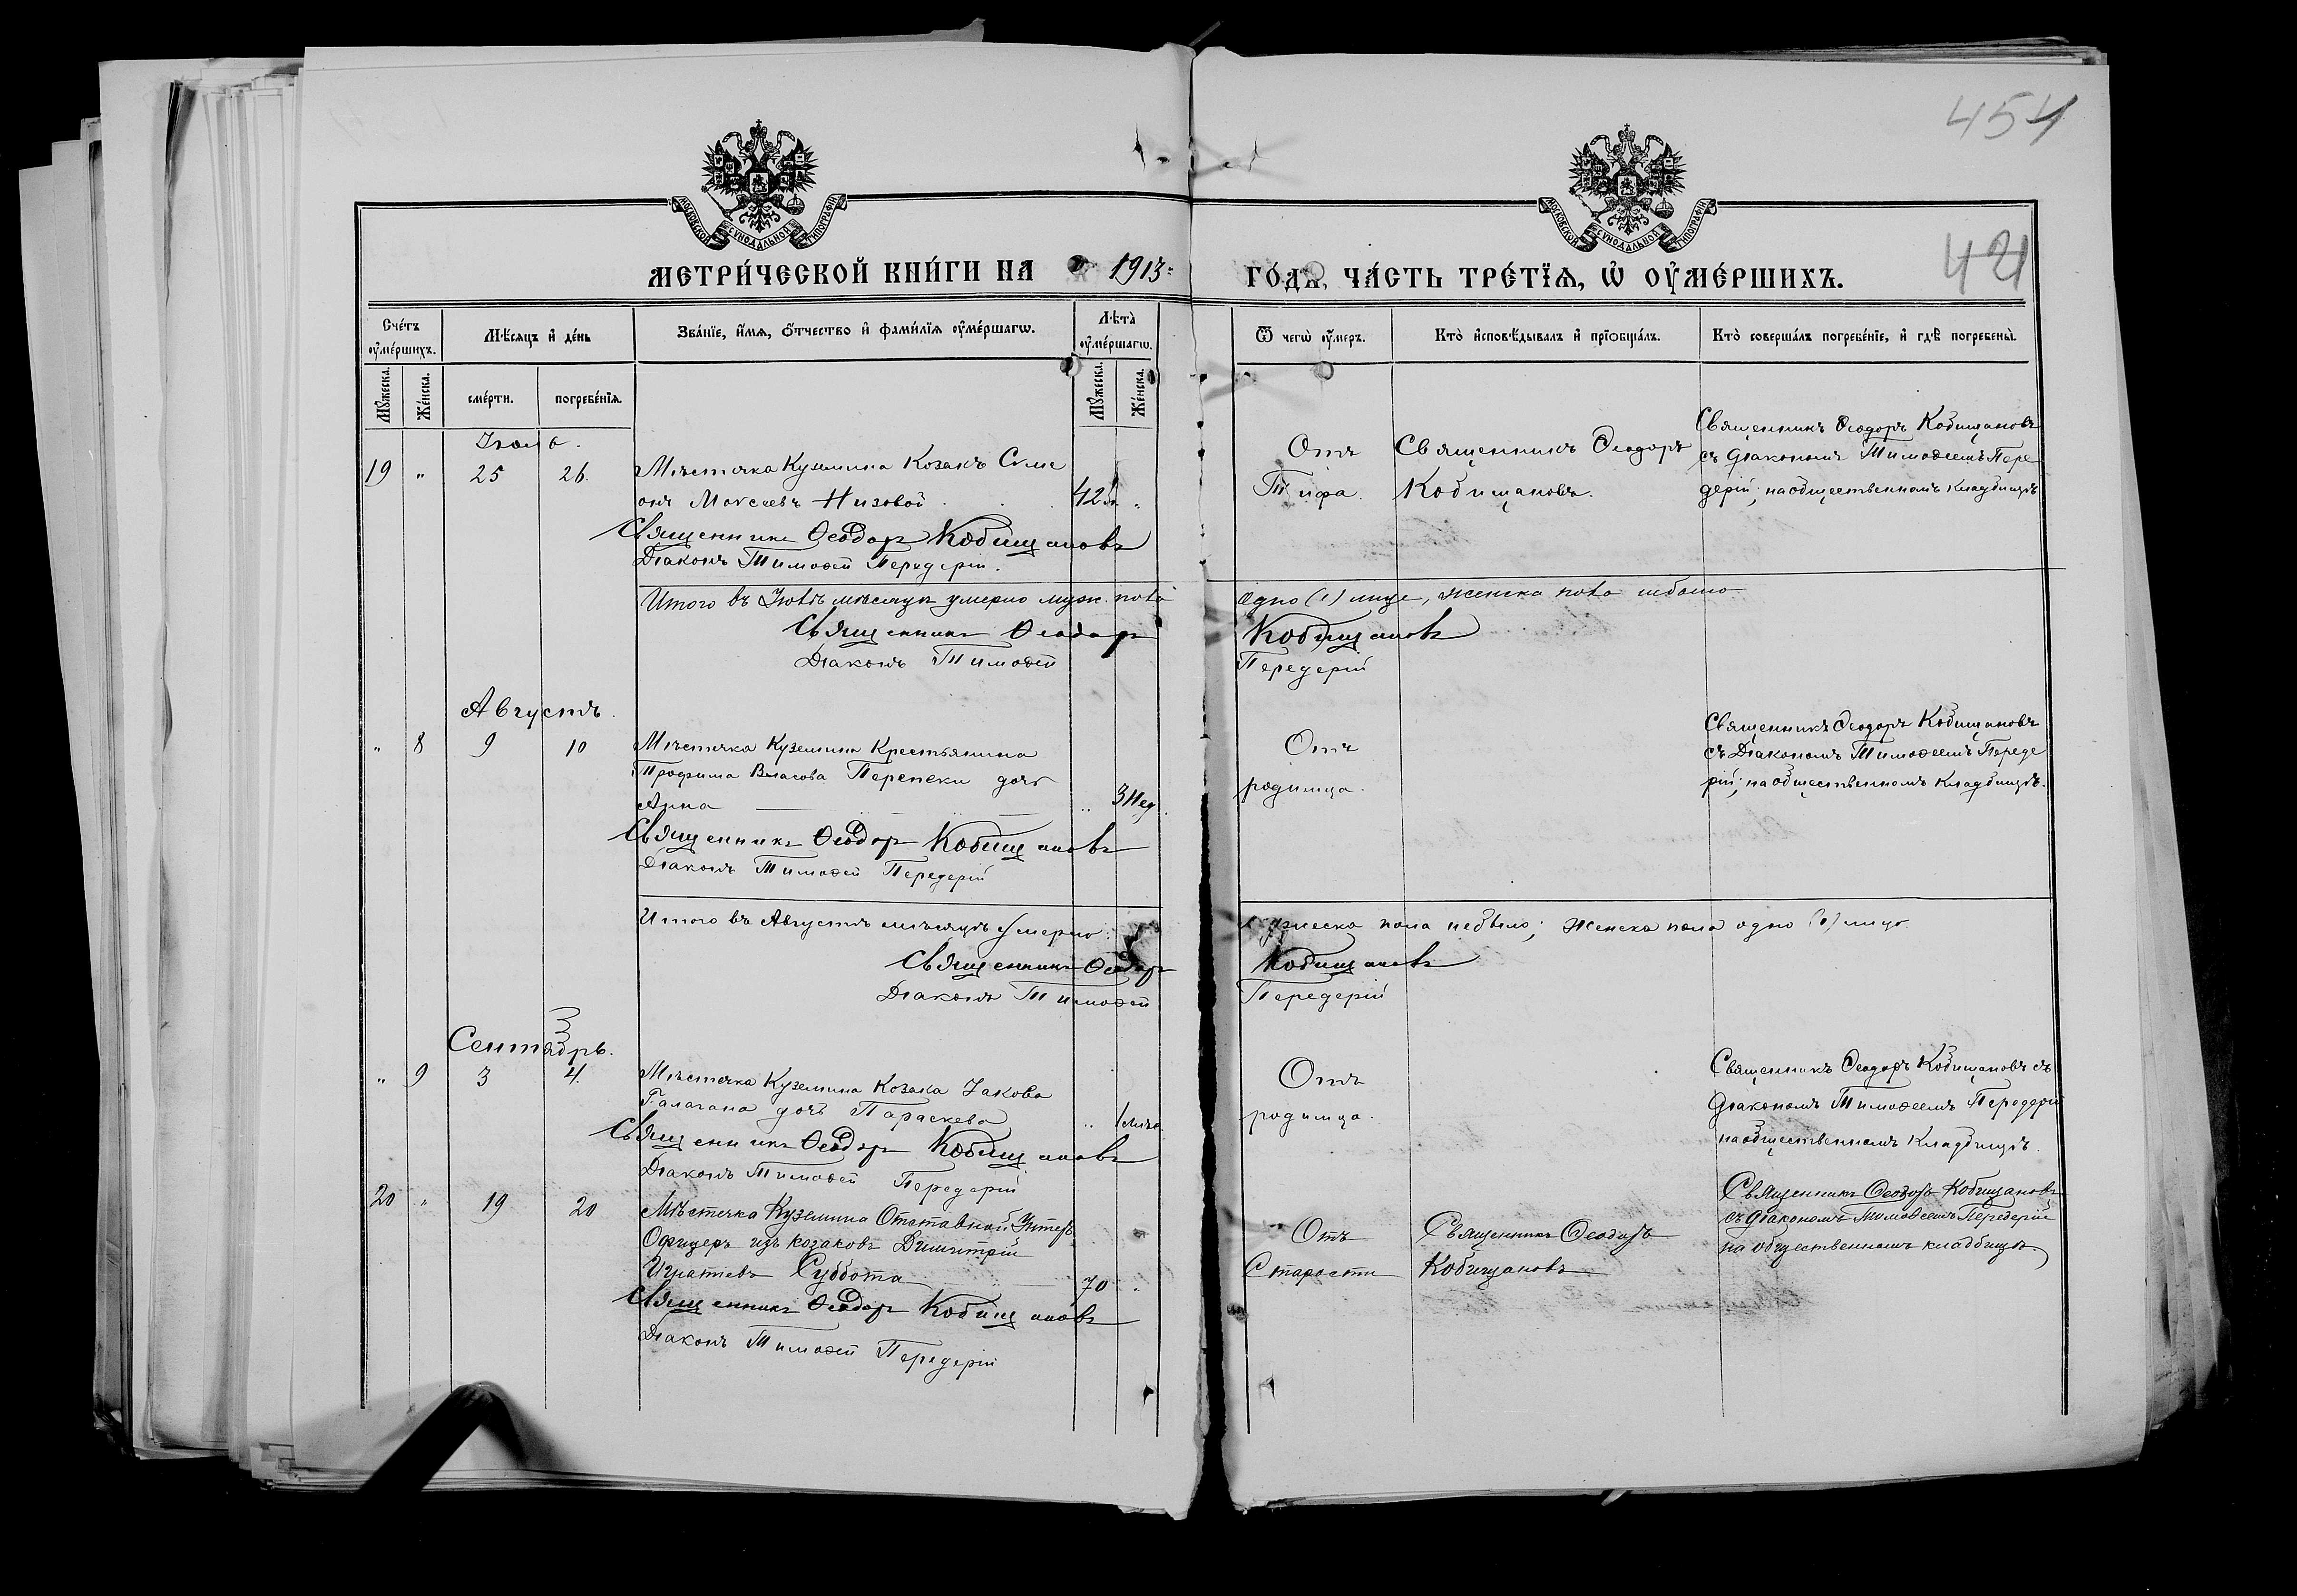 454
МОСКОВСКОЙ СУНОДАЛЬНОЙ ТИПОГРАФІИ
МОСКОВСКОЙ СУНОДАЛЬНОЙ ТИПОГРАФІИ
МЕТРИ́ЧЕСКОЙ КНИ́ГИ НА 1913
ГО́ДЪ, ЧА́СТЬ ТРЕ́ТЇѦ, Ѡ҆ ОУ҆МЕ́РШИХЪ.
421
Сче́тъ оу҆ме́ршихъ.
Мѣ́сѧцъ и҆ де́нь
Зва́нїе, и҆́мѧ, ѻ҆́тчество и҆ фами́лїѧ оу҆ме́ршагѡ.
Лѣ́та оу҆ме́ршагѡ.
Ѿ чегѡ̀ оу҆́меръ.
Кто̀ и҆сповѣ́дывалъ и҆ прїѻбща́лъ.
Кто̀ соверша́лъ погребе́нїе, и҆ гдѣ̀ погребены̀.
Мꙋ́жеска.
Же́нска.
сме́рти.
погребе́нїѧ.
Мꙋ́жеска.
Же́нска.
Іюль.
19 " 25 26.
Мѣстечка Куземина Козакъ Симе
онъ Моисеевъ Низовой 42 л. "
Священникъ Ѳеодоръ Кобищановъ
Діаконъ Тимоѳей Передерій.
Отъ
Тифа.
Священникъ Ѳеодоръ
Кобищановъ.
Священникъ Ѳеодоръ Кобищановъ
съ діакономъ Тимоѳеемъ Пере
дерій; на общественномъ кладбищѣ
Итого въ Іюлѣ мѣсяцѣ умерло муж. пола
одно (1) лице, женска пола небыло
Священникъ Ѳеодоръ Кобищановъ
Діаконъ Тимоѳей Передерій
Августъ.
" 8 9 10
Мѣстечка Куземина Крестьянина
Трофима Власова Перепеки дочь
Анна " 3 нед.
Священникъ Ѳеодоръ Кобищановъ
Діаконъ Тимоѳей Передерій
Отъ
родимца.
Священникъ Ѳеодоръ Кобищановъ
съ Діакономъ Тимоѳеемъ Переде
рій; на общественномъ кладбищѣ.
Итого въ Августѣ мѣсяцѣ умерло:
мужеска пола небыло; женска пола одно (1) лице.
Священникъ Ѳеодоръ Кобищановъ
Діаконъ Тимоѳей Передерій
Сентябрь.
" 9 3 4.
Мѣстечка Куземина Козака Іакова
Галагана дочь Параскева "
Священникъ Ѳеодоръ Кобищановъ
Діаконъ Тимоѳей Передерій
Отъ
родимца.
Священникъ Ѳеодоръ Кобищановъ съ
діакономъ Тимоѳеемъ Передерій
на общественномъ кладбищѣ.
20 " 19 20
Мѣстечка Куземина Отставной Унтеръ
Офицеръ изъ козаковъ Димитрій
Игнатіевъ Суббота 70 "
Священникъ Ѳеодоръ Кобищановъ
Діаконъ Тимоѳей Передерій
Отъ
Старости
Священникъ Ѳеодоръ
Кобищановъ
Священникъ Ѳеодоръ Кобищановъ
съ діакономъ Тимоѳеемъ Передерій
на общественномъ кладбищѣ.